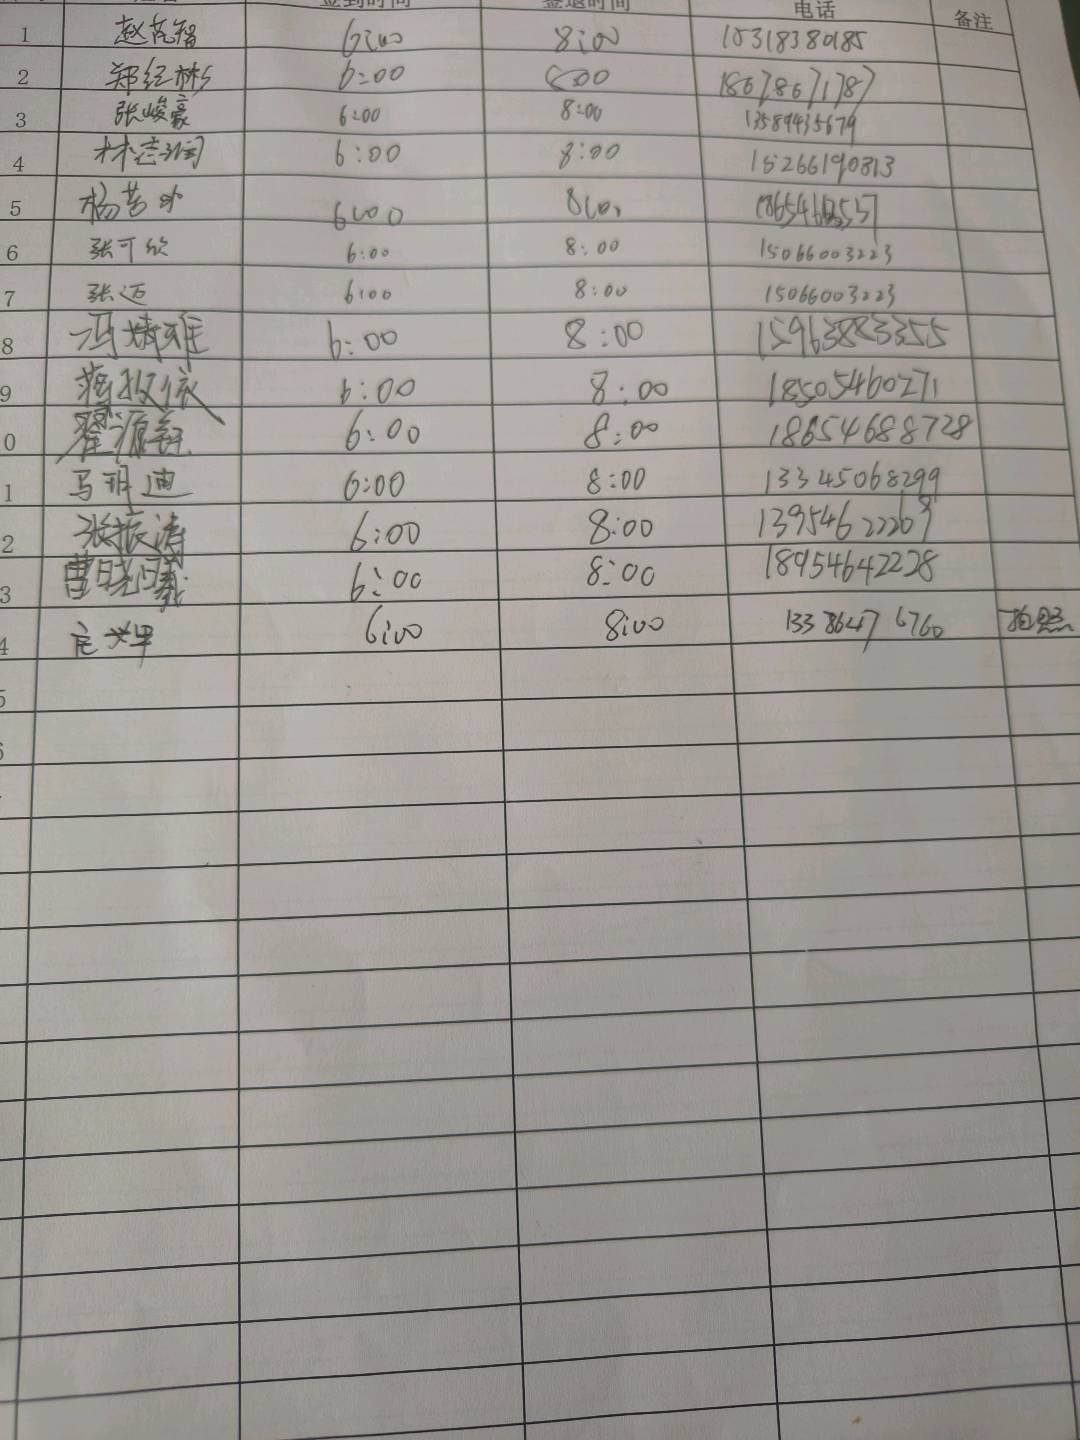 签到时间 签退时间 电话 备注
1 6:00 8:00 15318380185
2 郑经彬 6:00 8:00 18678671787
3 张峻豪 6:00 8:00 13589435679
4 林志润 6:00 8:00 15266190813
5 杨 6:00 8:00
6 张可欣 6:00 8:00 15066003223
7 张迈 6:00 8:00 15066003223
8 冯婧雅 6:00 8:00 15963883355
9 蒋 依 6:00 8:00 18505460271
0 翟源 6:00 8:00 18654688728
1 马明迪 6:00 8:00 13345068299
2 张振涛 6:00 8:00 13954622269
3 曹晓曦 6:00 8:00 18954642228
4 6:00 8:00 13386476760 拍照
5